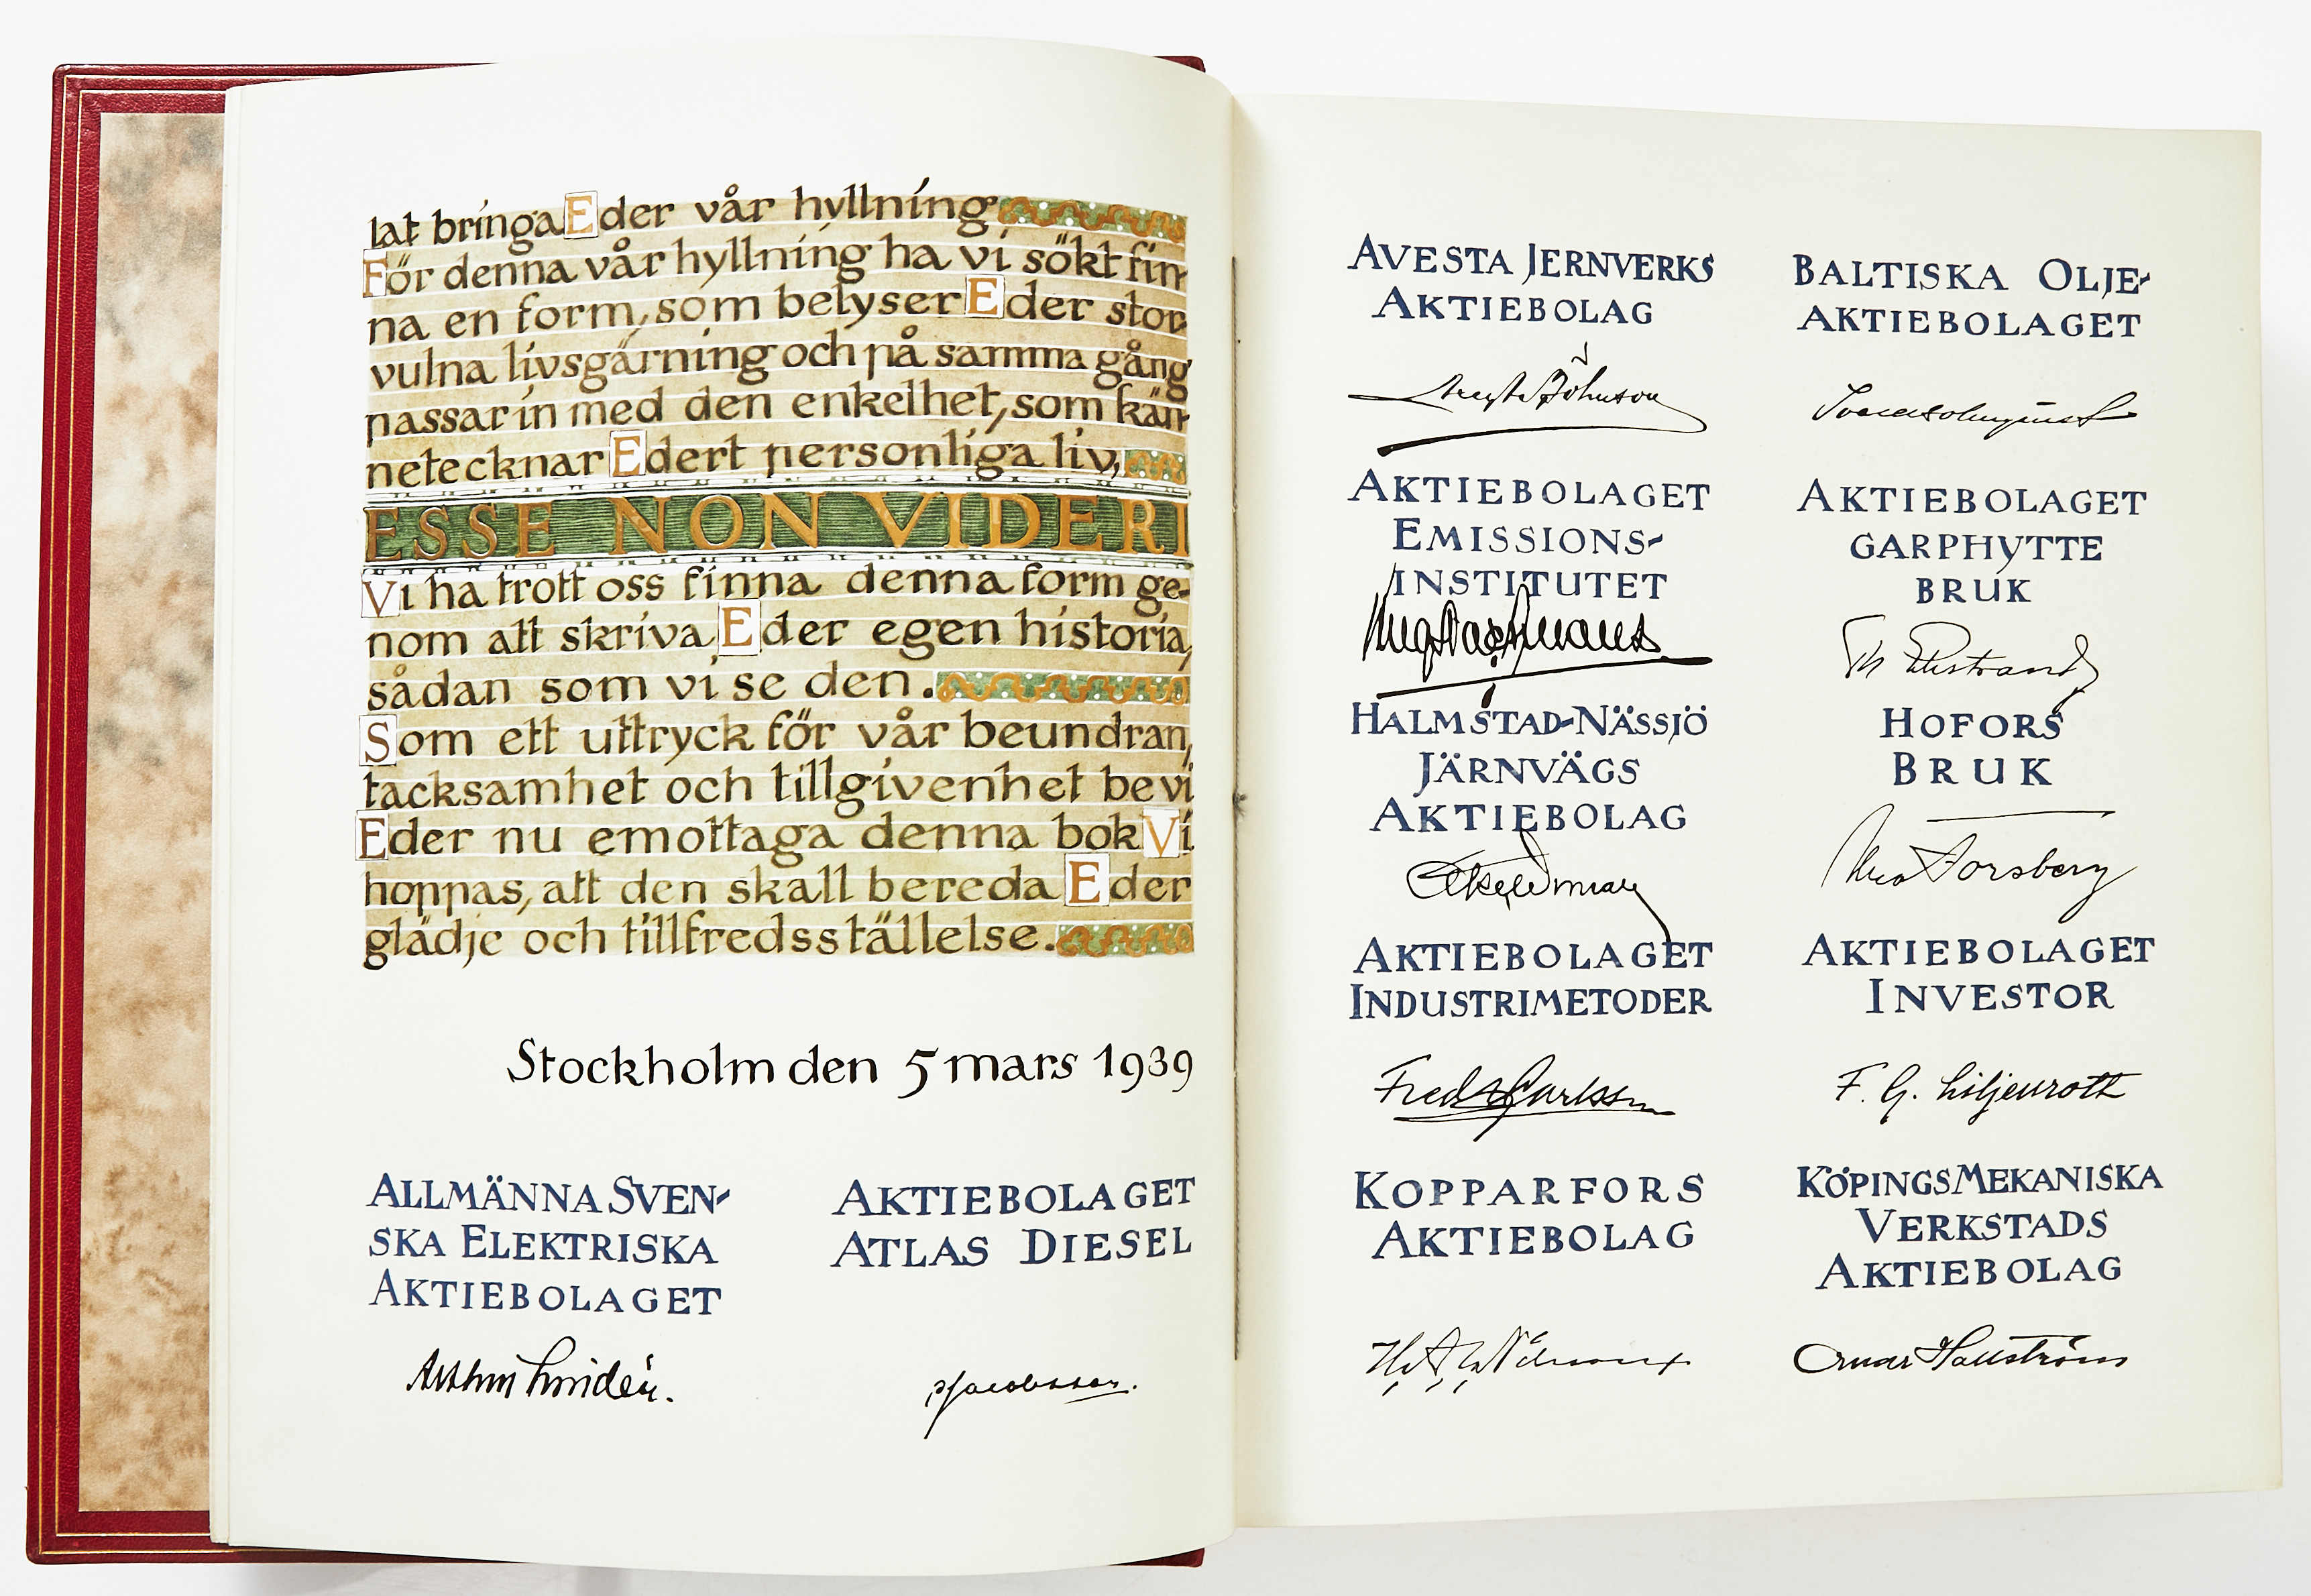 lat bringa Eder vår hyllning
För denna vår hyllning ha vi sökt fin-
na en form, som belyser Eder stor-
vulna livsgärning och på samma gång
passar in med den enkelhet, som kän-
netecknar Edert personliga liv,
ESSE NON VIDERI
Vi ha trott oss finna denna form ge-
nom att skriva Eder egen historia,
sådan som vi se den.
Som ett uttryck för vår beundran,
tacksamhet och tillgivenhet be vi
Eder nu emottaga denna bok Vi
hoppas, att den skall bereda Eder
glädje och tillfredsställelse.
Stockholm den 5 mars 1939
ALLMÄNNA SVEN-
SKA ELEKTRISKA
AKTIEBOLAGET
Arthur Lindén.
AKTIEBOLAGET
ATLAS DIESEL
Jacobsson.
AVESTA JERNVERKS
AKTIEBOLAG
Johnson
BALTISKA OLJE-
AKTIEBOLAGET
AKTIEBOLAGET
EMISSIONS-
INSTITUTET
AKTIEBOLAGET
GARPHYTTE
BRUK
Th Ekstrand
HALMSTAD-NÄSSJÖ
JÄRNVÄGS
AKTIEBOLAG
HOFORS
BRUK
Forsberg
AKTIEBOLAGET
INDUSTRIMETODER
Fred Carlsson
AKTIEBOLAGET
INVESTOR
F. G. Liljenroth
KOPPARFORS
AKTIEBOLAG
KÖPINGS MEKANISKA
VERKSTADS
AKTIEBOLAG
Hallström